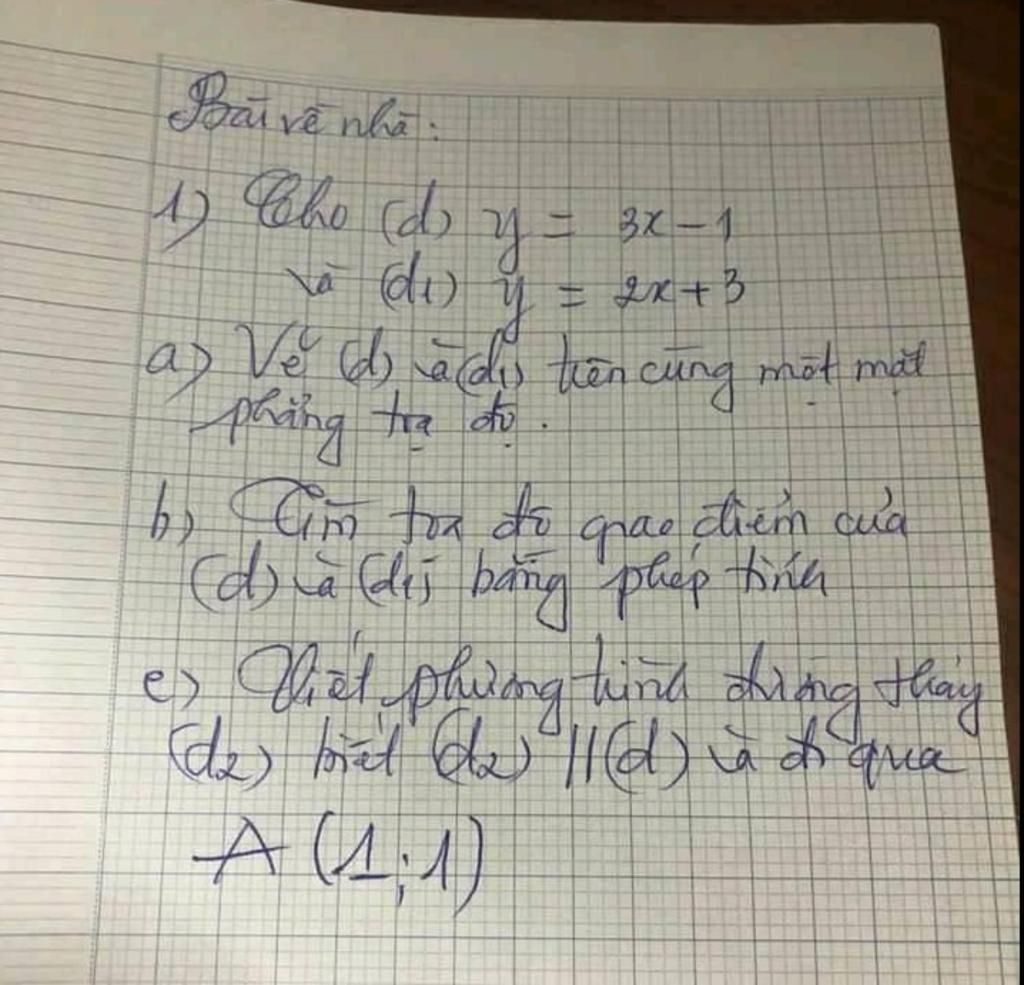 Bài về nhà:
1) Cho (d) y = 3x - 1
và (d1) y = 2x + 3
a) Vẽ (d) và (d1) trên cùng một mặt
phẳng tọa độ.
b) Tìm tọa độ giao điểm của
(d) và (d1) bằng phép tính
c) Viết phương trình đường thẳng
(d2) biết (d2) // (d) và đi qua
A (1; 1)